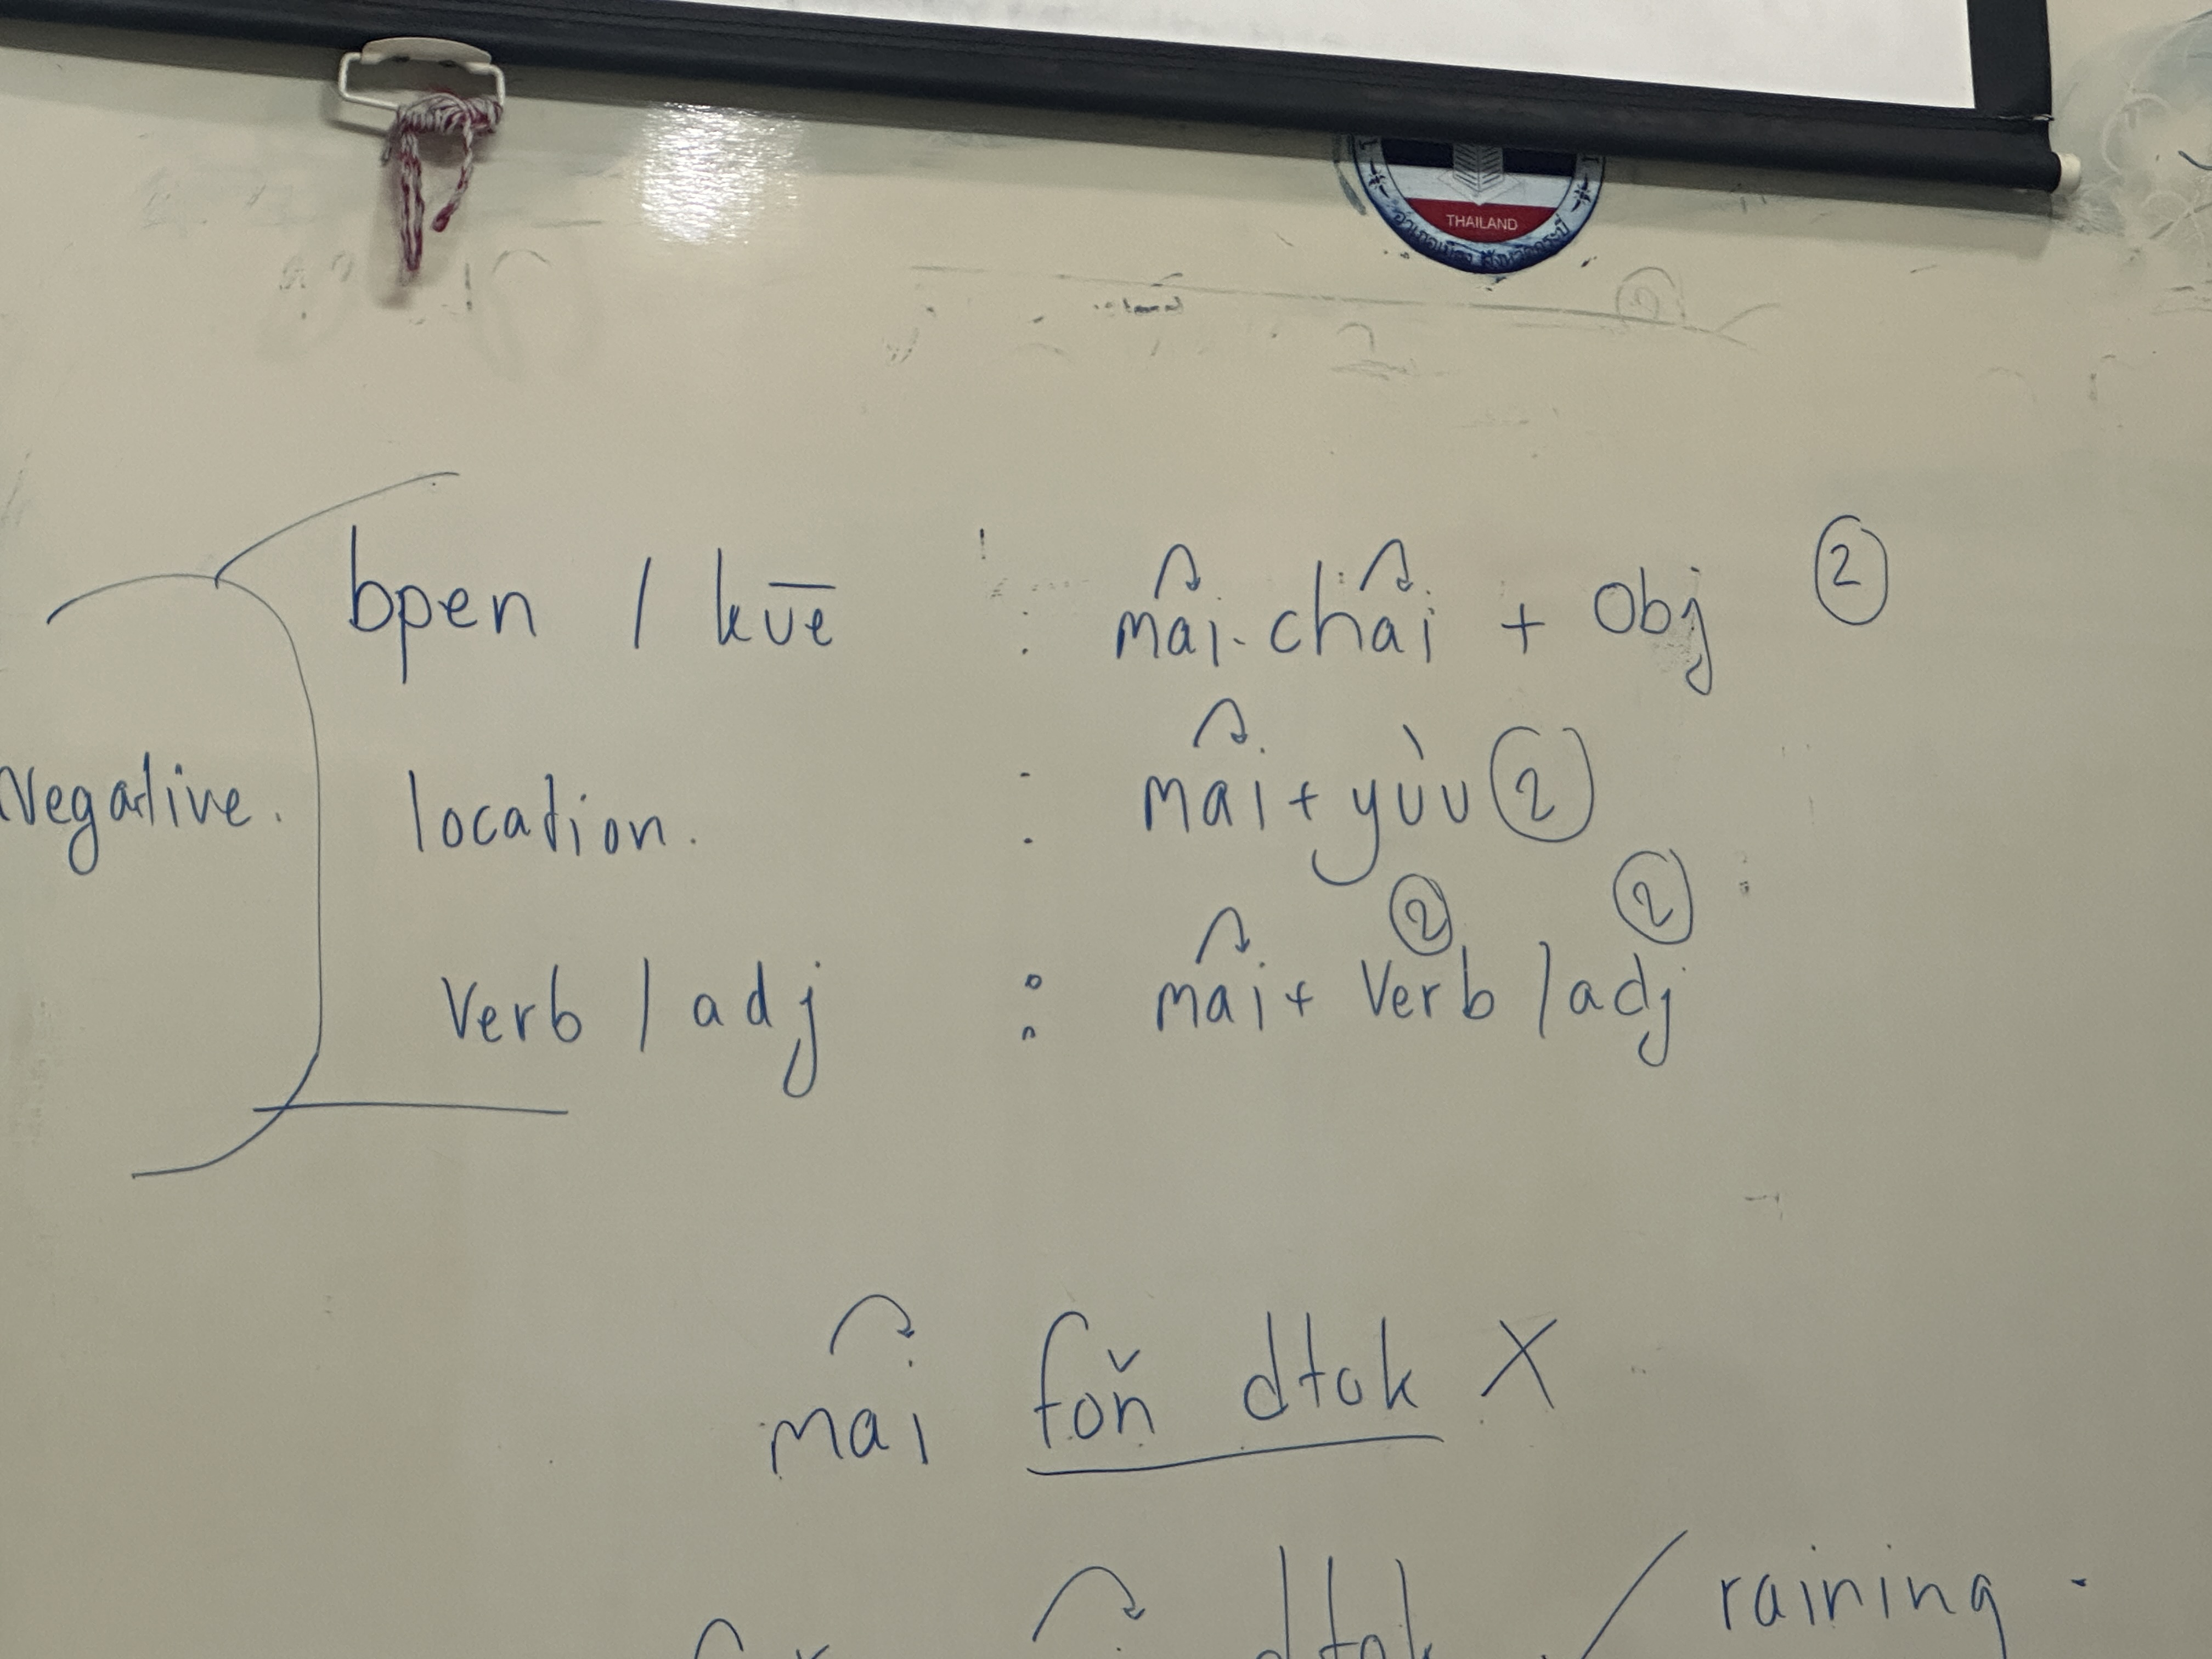 THAILAND
bpen / kūe : mâi-châi + Obj ②
Negative. location. : mâi + yùu ②
② ②
Verb / adj : mâi + Verb / adj
mai fǒn dtok X
dtok / raining.